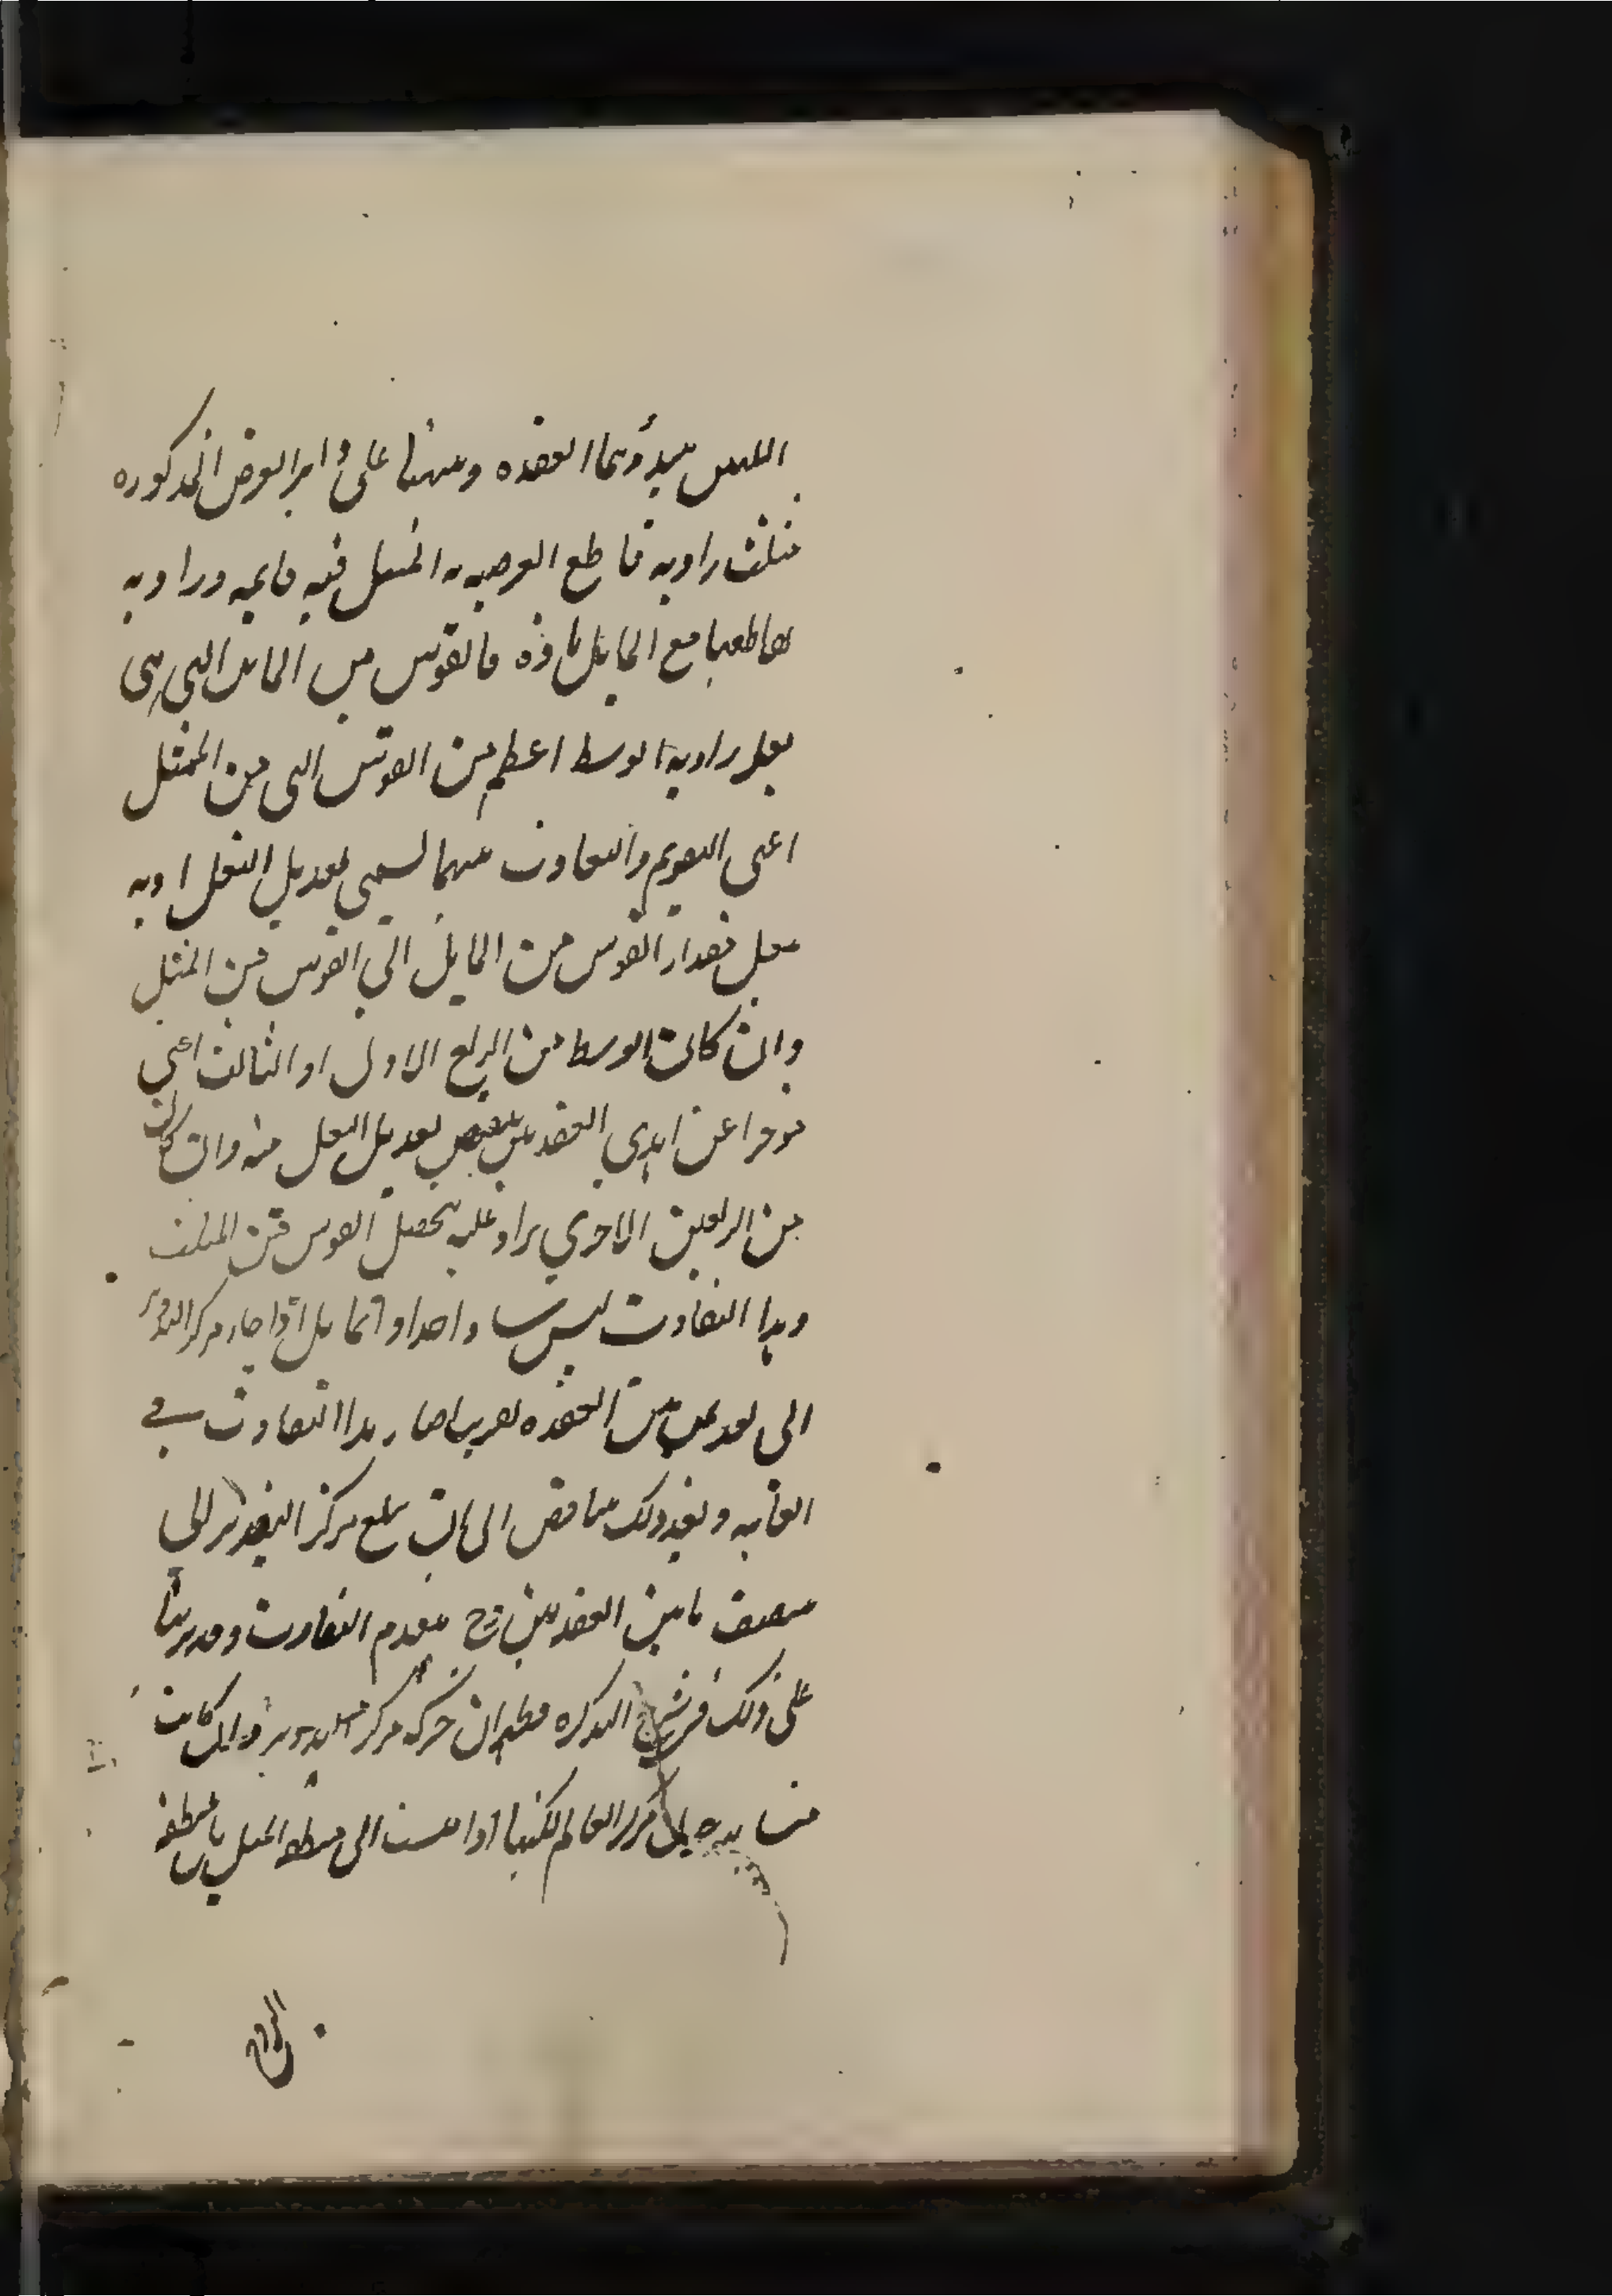 اللتين مبدؤهما العقده ومنهما على دائرة العرض المذكوره
مثلث زاويه تقاطع العرضيه مع الممثل فيه قايمه وزاويه
تقاطعها مع المايل حاده فالقوس من المايل التي هي
بعد زاويه الوسط اعظم من القوس التي من الممثل
اعني التقويم والتفاوت بينهما يسمى تعديل النقل اذ به
ينقل مقدار القوس من المايل الى القوس من الممثل
وان كان الوسط من الربع الاول او الثالث اعني
موخرا عن احدي العقدتين ينقص تعديل النقل منه وان كان
من الربعين الاخري يزاد عليه يحصل القوس من الممثل
وهذا التفاوت ليس شيا واحدا دائما بل اذا جاء مركز التدوير
الى بعد ثمن من العقده تقريبا صار هذا التفاوت في
الغايه وبعد ذلك يتناقص الى ان يبلغ مركز التدوير الى
منتصف ما بين العقدتين وح ينعدم التفاوت وقد برهنا
على ذلك في شرح التذكره فظهر ان حركه مركز التدوير وان كانت
متشابهه حول مركز العالم لكنها اذا قيست الى منطقه الممثل يا منطقه
البروج